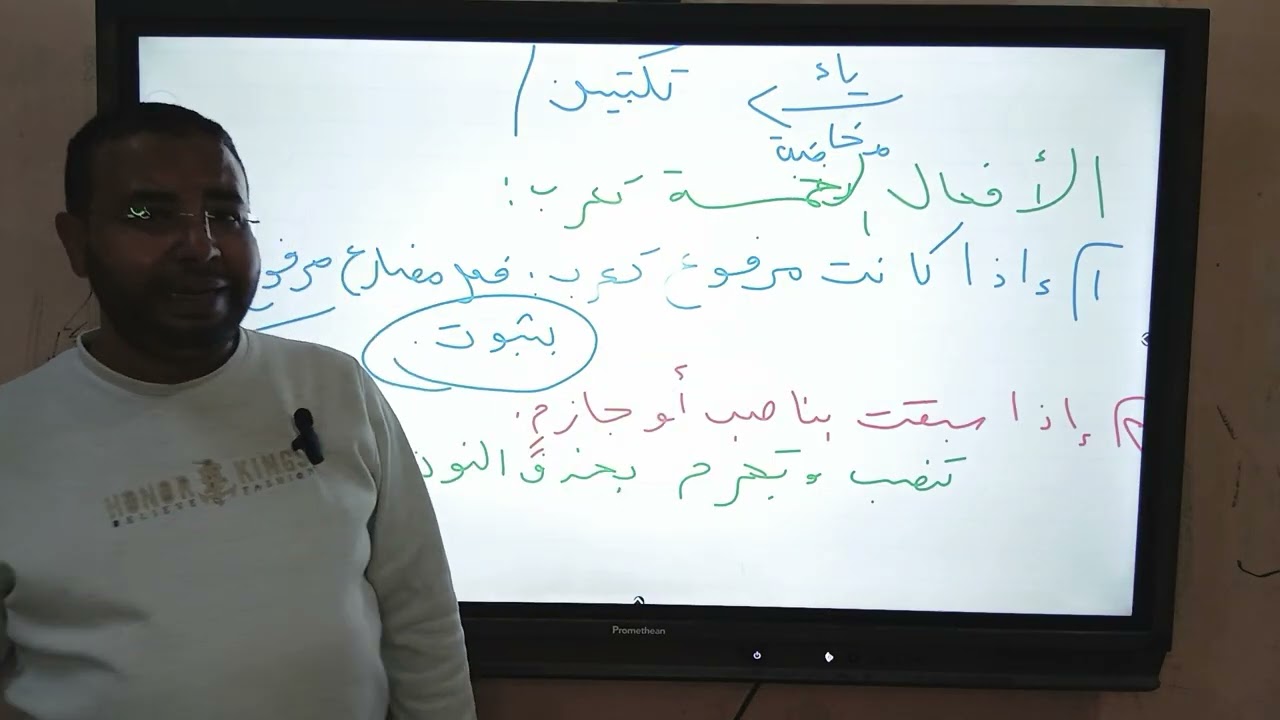 ياء تكتبين
مخاطبة
الأفعال الخمسة تعرب:
١) إذا كانت مرفوع تعرب: فعل مضارع مرفوع
بثبوت
٢) إذا سبقت بناصب أو جازم.
تنصب وتجزم بحذف النون
HONOR KINGS
BELIEVE FASHION
Promethean